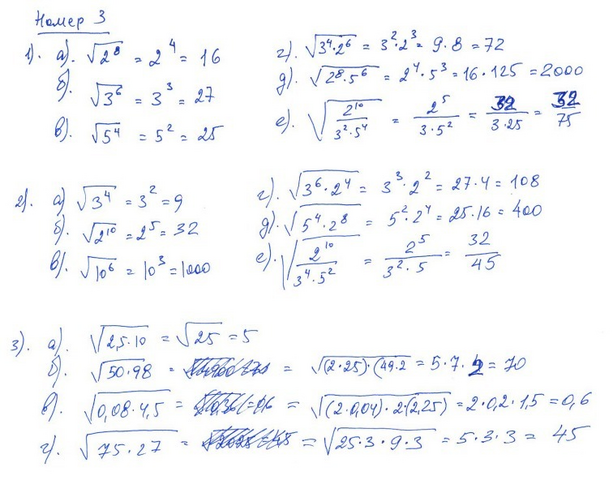 Номер 3
1). а). √2⁸ = 2⁴ = 16
б). √3⁶ = 3³ = 27
в). √5⁴ = 5² = 25
г). √3⁴·2⁶ = 3²·2³ = 9·8 = 72
д). √2⁸·5⁶ = 2⁴·5³ = 16·125 = 2000
е). √2¹⁰/3²·5⁴ = 2⁵/3·5² = 32/3·25 = 32/75
2). а) √3⁴ = 3² = 9
б). √2¹⁰ = 2⁵ = 32
в). √10⁶ = 10³ = 1000
г). √3⁶·2⁴ = 3³·2² = 27·4 = 108
д). √5⁴·2⁸ = 5²·2⁴ = 25·16 = 400
е). √2¹⁰/3⁴·5² = 2⁵/3²·5 = 32/45
3). а). √2,5·10 = √25 = 5
б). √50·98 = = √(2·25)·(49·2 = 5·7·2 = 70
в). √0,08·4,5 = = √(2·0,04)·2(2,25) = 2·0,2·1,5 = 0,6
г). √75·27 = = √25·3·9·3 = 5·3·3 = 45